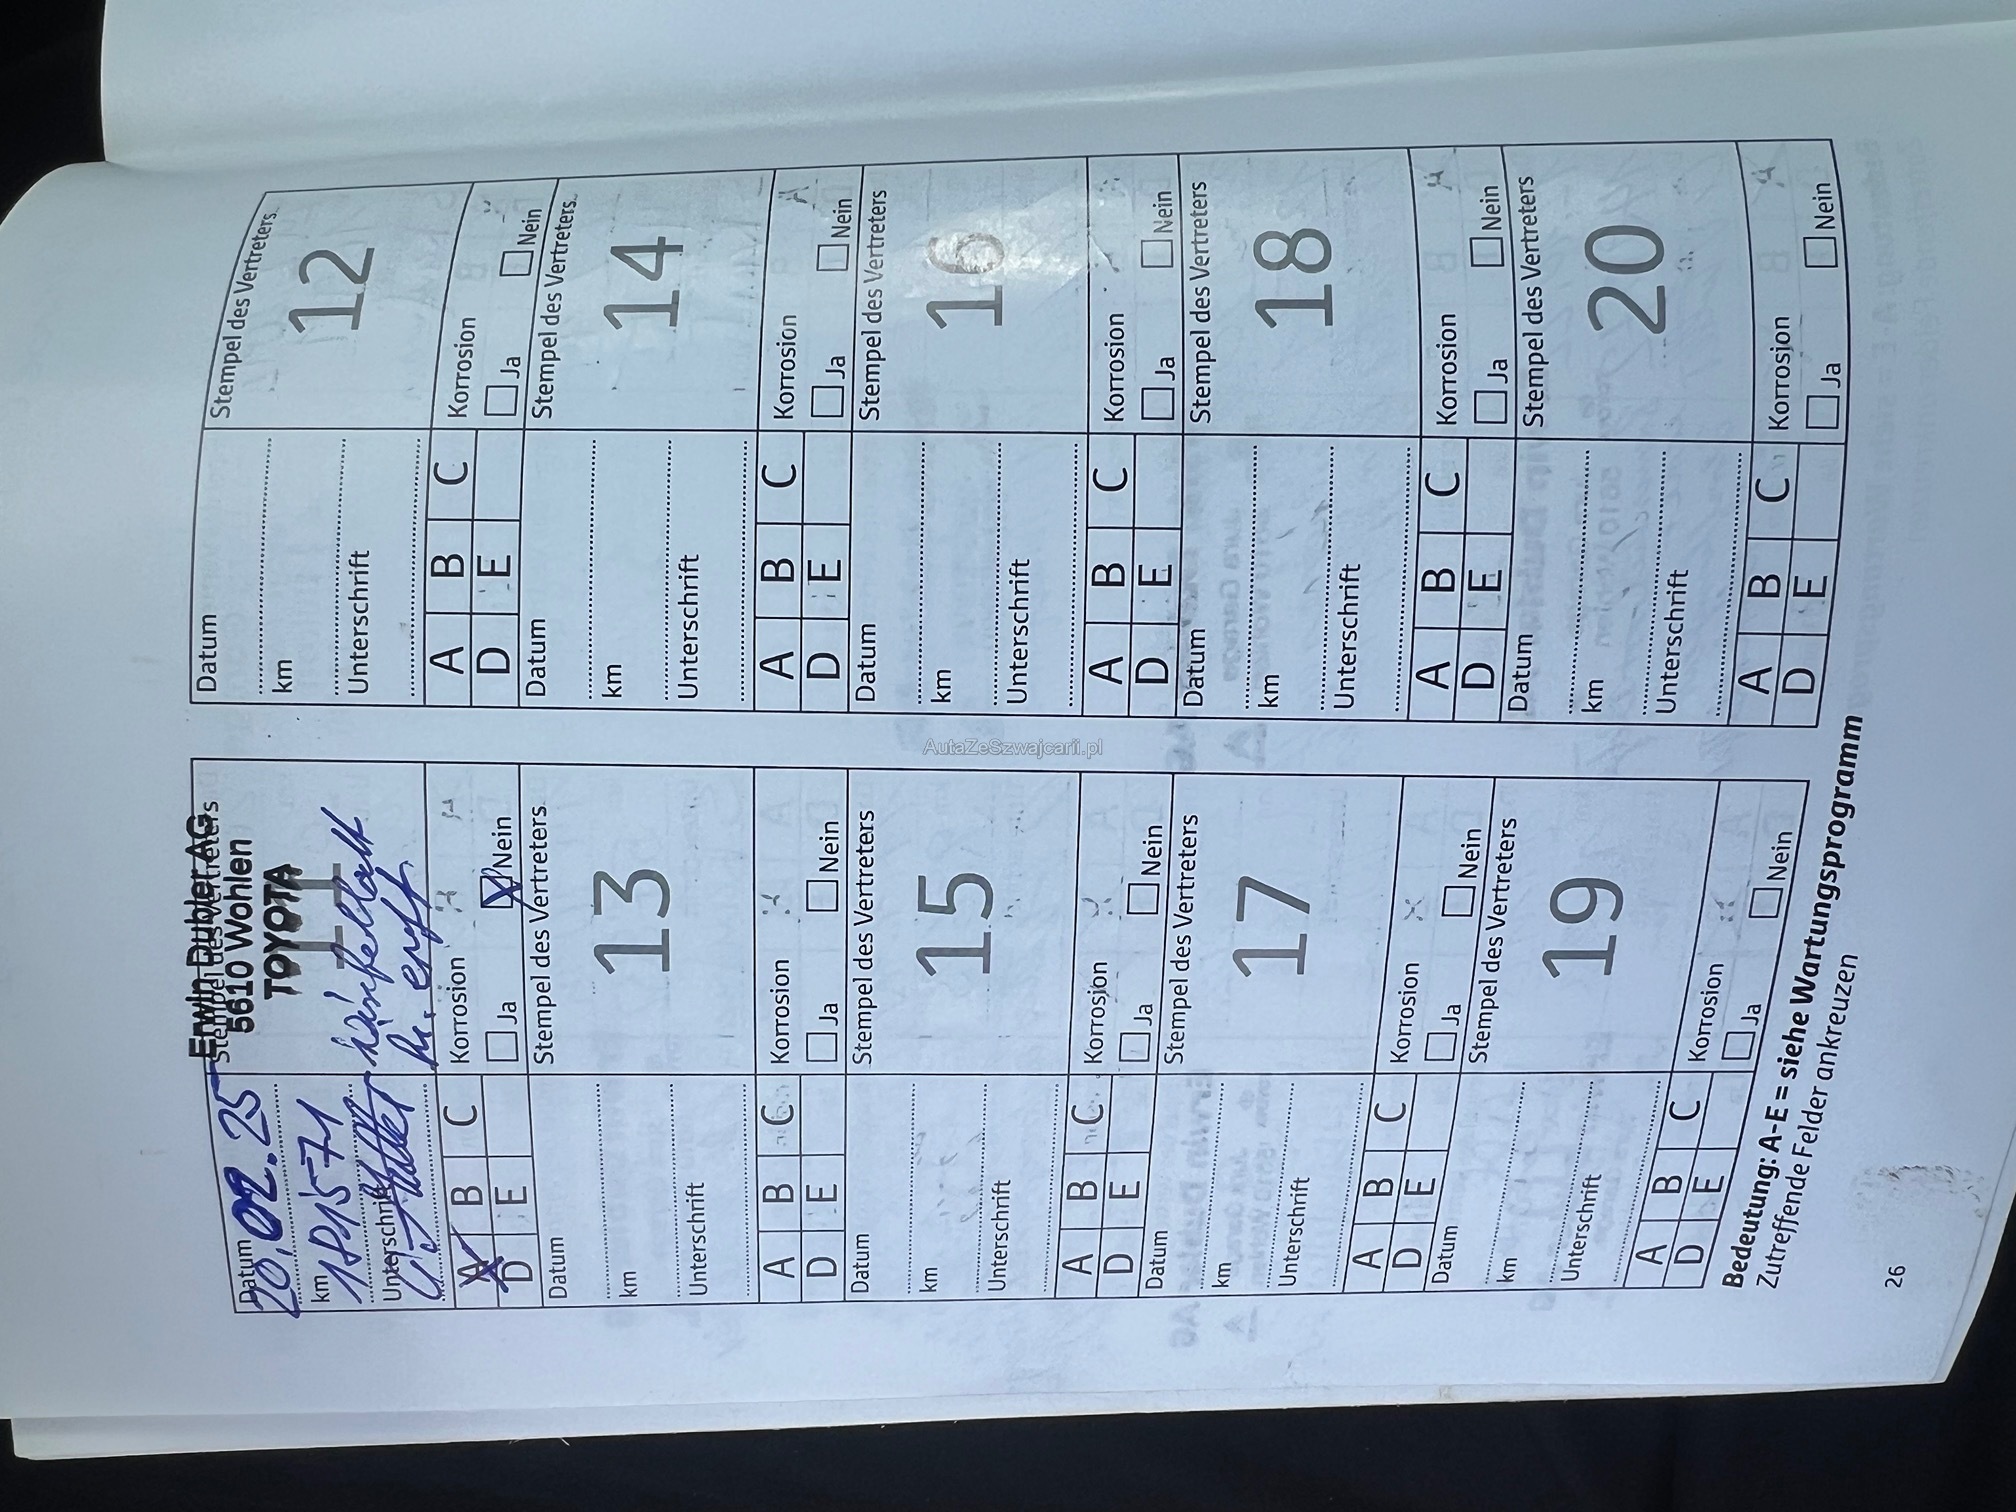 Datum
20.02.25
Stempel des Vertreters
Erwin Dubler AG
5610 Wohlen
TOYOTA
11
km
181571
Unterschrift
A B C
D E
Korrosion
Ja Nein
Datum
Stempel des Vertreters
12
km
Unterschrift
A B C
D E
Korrosion
Ja Nein
Datum
Stempel des Vertreters
13
km
Unterschrift
A B C
D E
Korrosion
Ja Nein
Datum
Stempel des Vertreters
14
km
Unterschrift
A B C
D E
Korrosion
Ja Nein
Datum
Stempel des Vertreters
15
km
Unterschrift
A B C
D E
Korrosion
Ja Nein
Datum
Stempel des Vertreters
16
km
Unterschrift
A B C
D E
Korrosion
Ja Nein
Datum
Stempel des Vertreters
17
km
Unterschrift
A B C
D E
Korrosion
Ja Nein
Datum
Stempel des Vertreters
18
km
Unterschrift
A B C
D E
Korrosion
Ja Nein
Datum
Stempel des Vertreters
19
km
Unterschrift
A B C
D E
Korrosion
Ja Nein
Datum
Stempel des Vertreters
20
km
Unterschrift
A B C
D E
Korrosion
Ja Nein
Bedeutung: A-E = siehe Wartungsprogramm
Zutreffende Felder ankreuzen
26
AutaZeSzwajcarii.pl